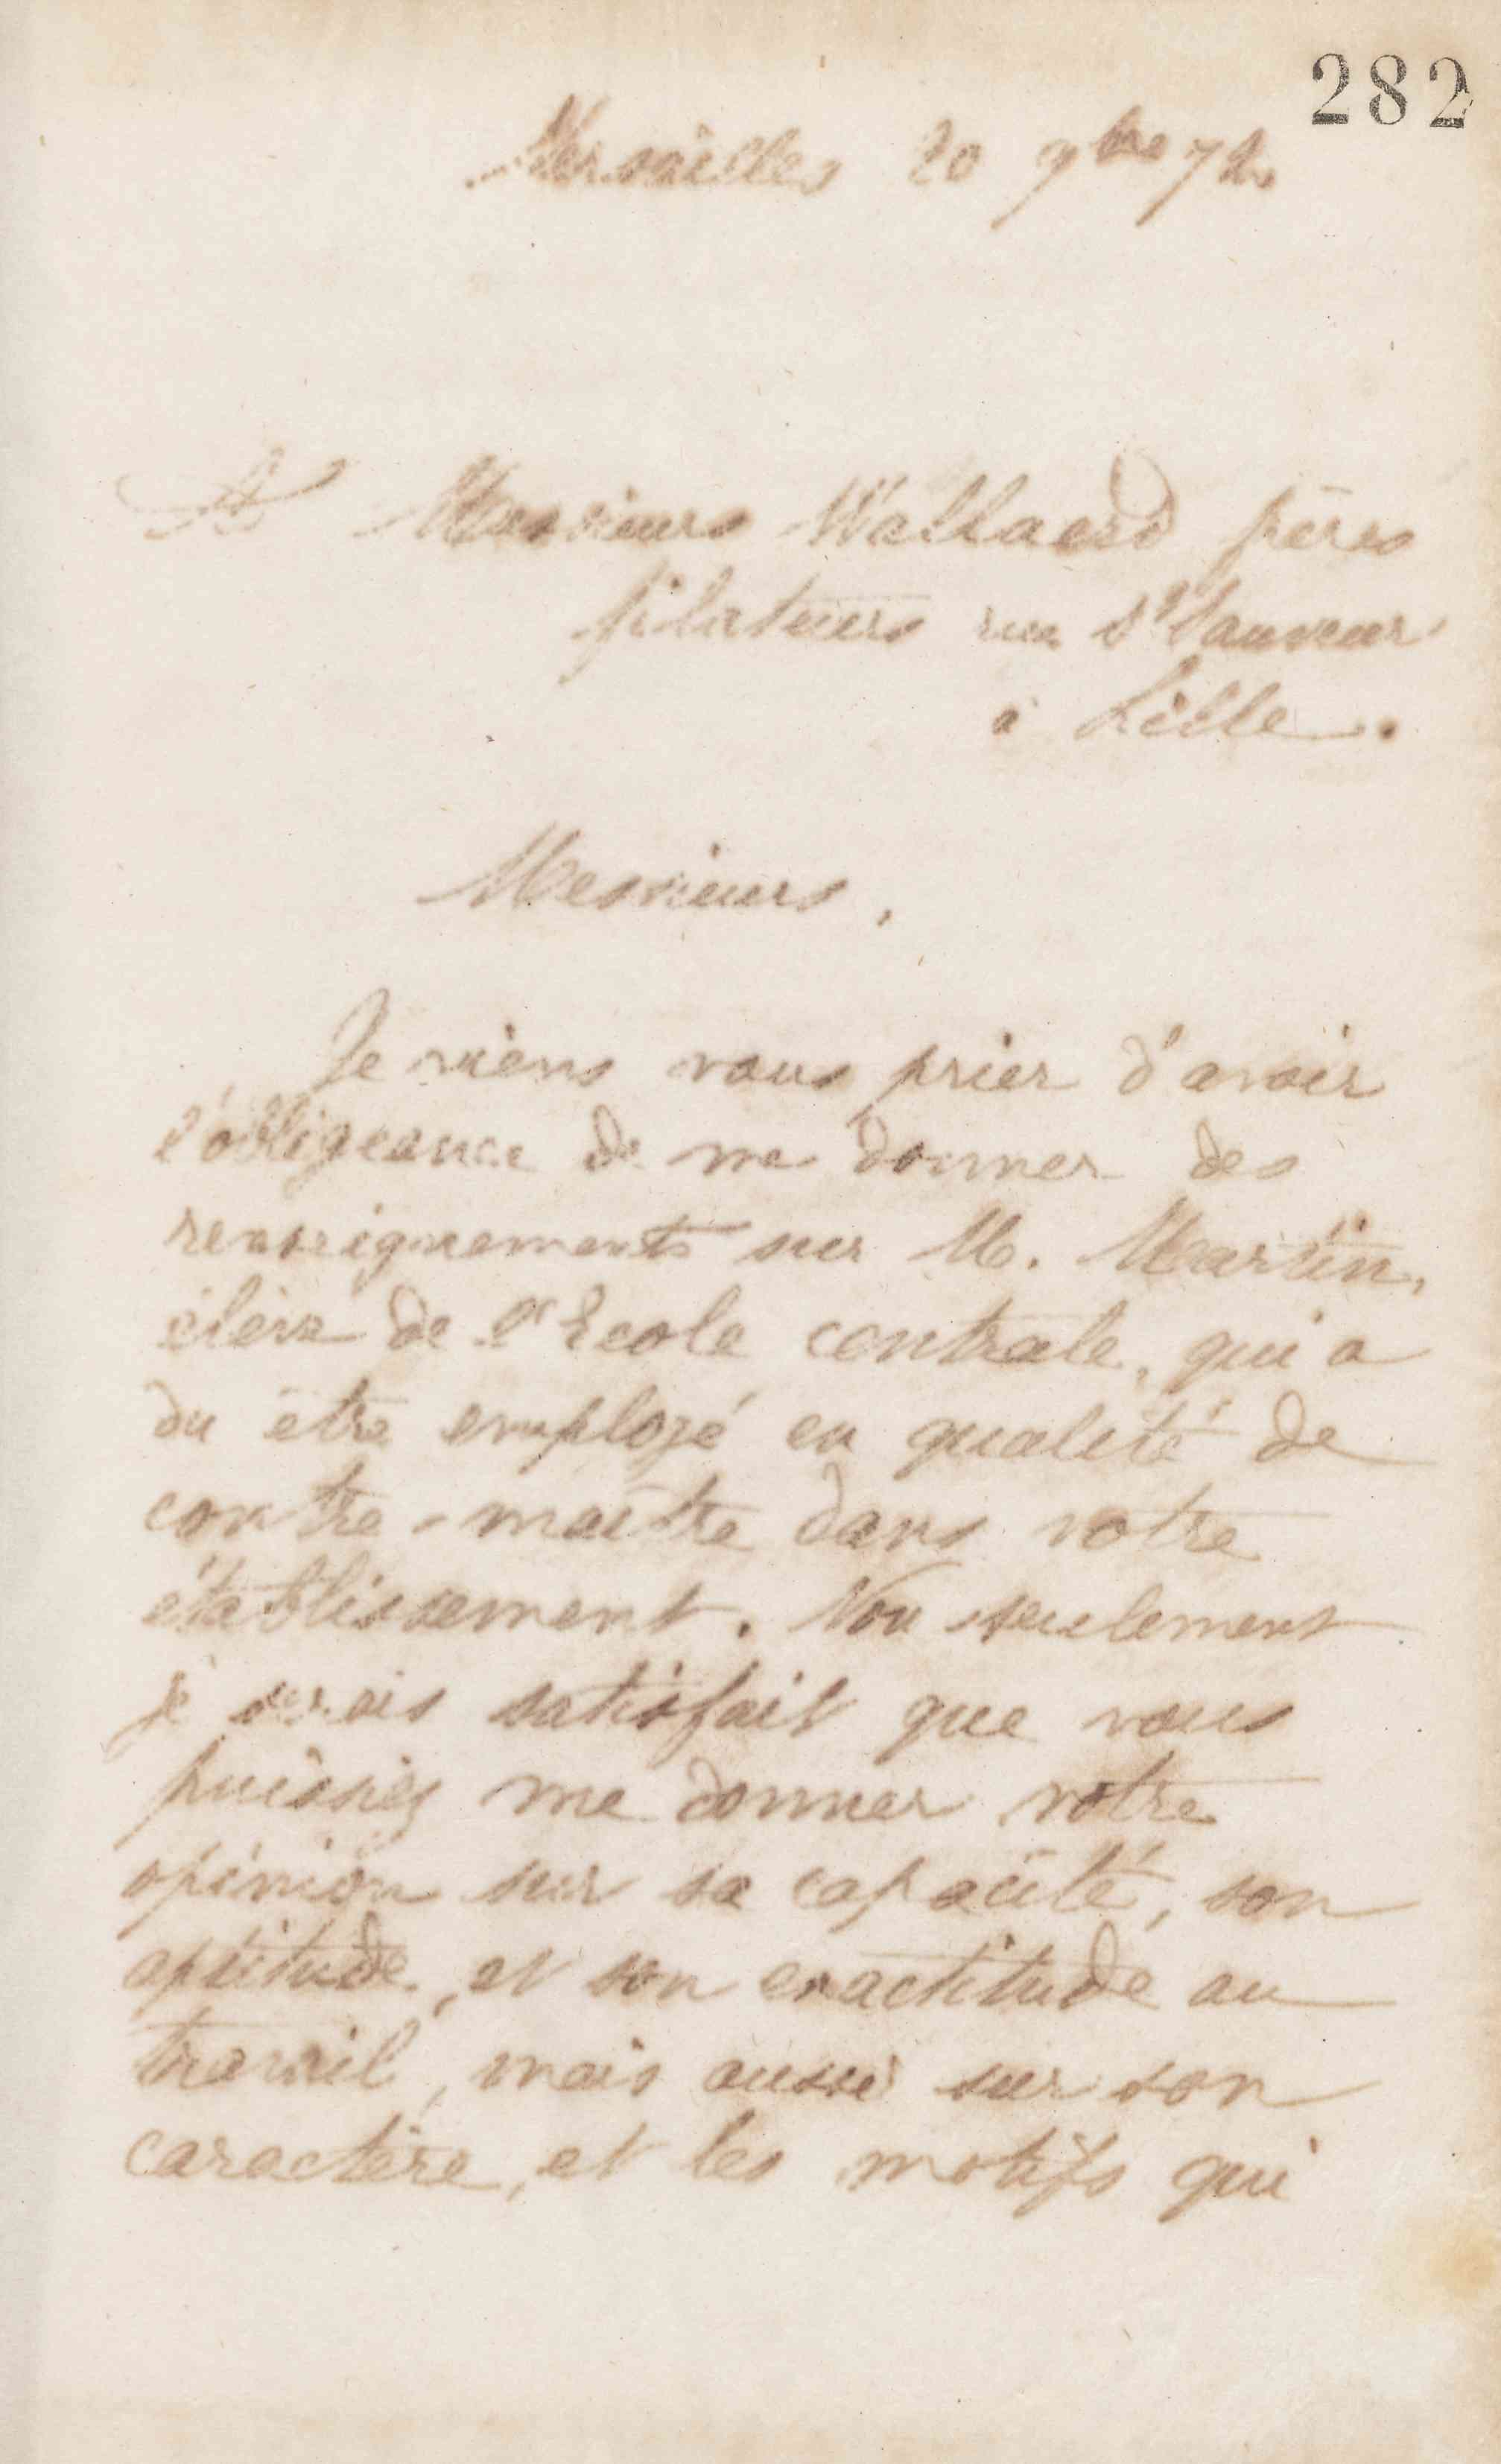 282
Versailles 20 9bre 72
A Messieurs Wallaerd pères
filateurs rue St Sauveur
à Lille.
Messieurs,
Je viens vous prier d'avoir
l'obligeance de me donner des
renseignements sur M. Martin,
élève de l'Ecole centrale, qui a
du être employé en qualité de
contre-maître dans votre
établissement. Non seulement
je serais satisfait que vous
puissiez me donner votre
opinion sur sa capacité, son
aptitude, et son exactitude au
travail, mais aussi sur son
caractère, et les motifs qui